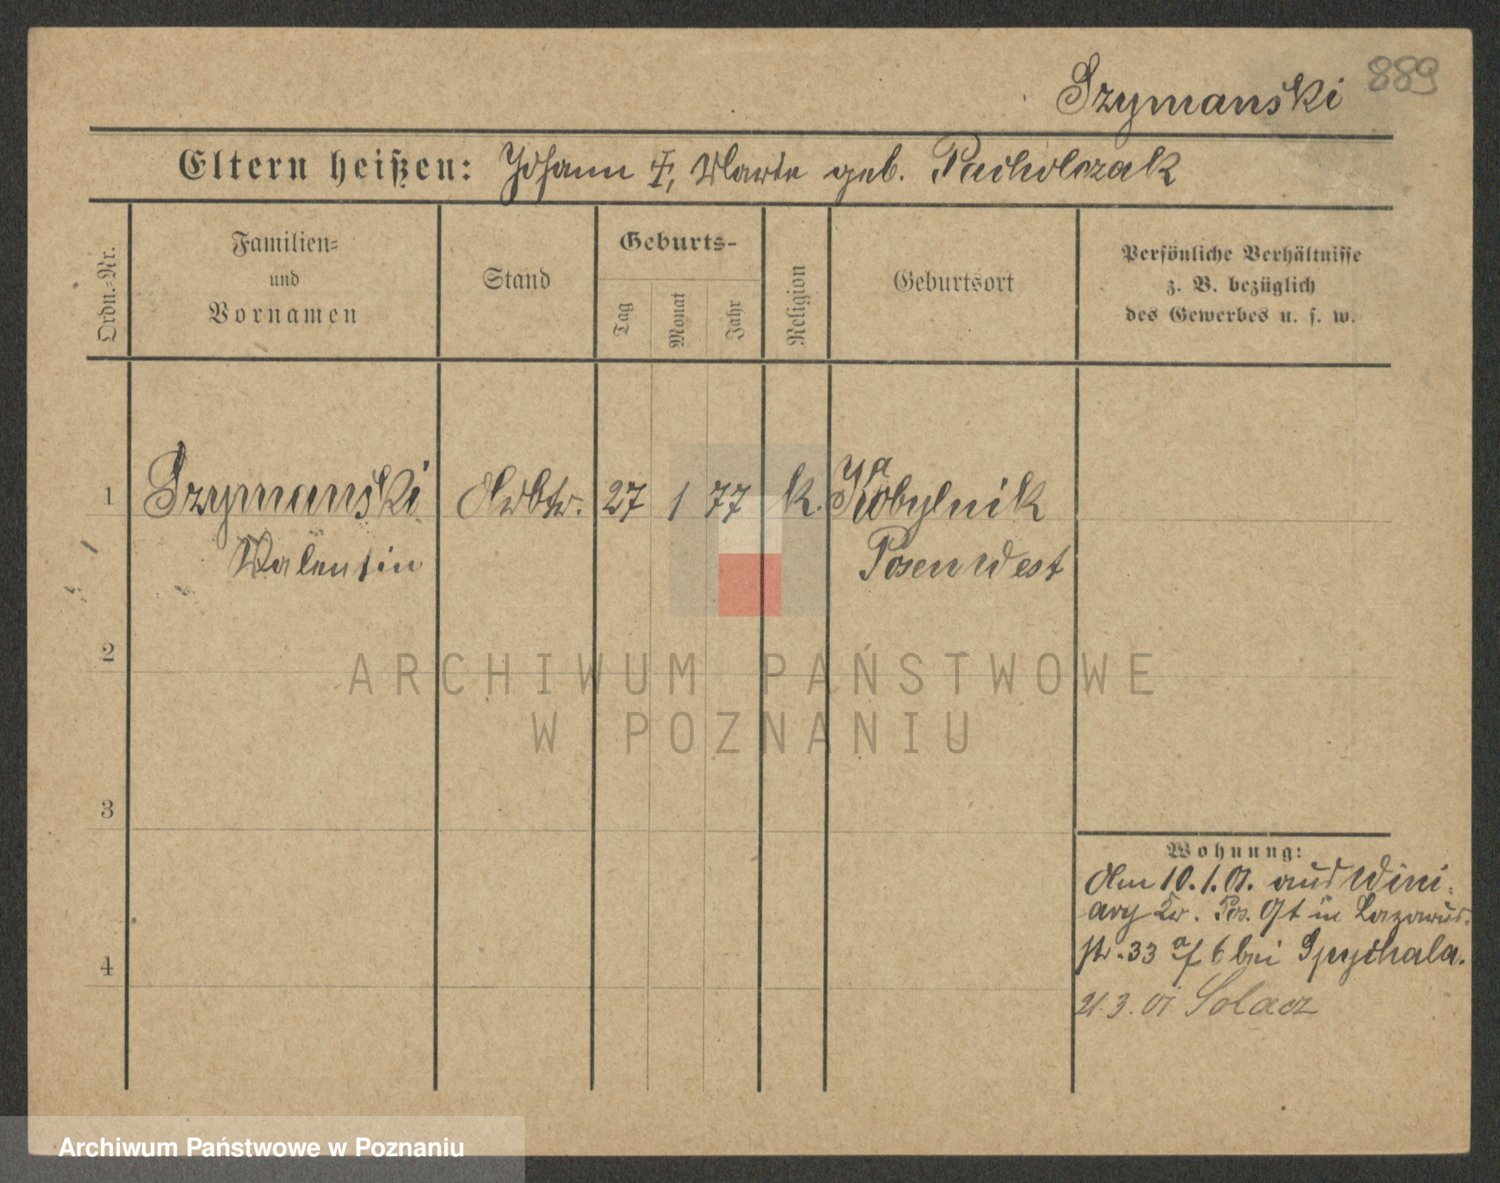 Szymanski 889
Eltern heißen: Johann †, Marie geb. Pacholczak
Ordn.-Nr.
Familien-
und
Vornamen
Stand
Geburts-
Tag
Monat
Jahr
Religion
Geburtsort
Persönliche Verhältnisse
z. B. bezüglich
des Gewerbes u. s. w.
1 Szymanski Arbtr. 27 1 77 k. Kobylnik
a
Valentin Posen West
2
ARCHIWUM PAŃSTWOWE
W POZNANIU
3
Wohnung:
Am 10.1.01. aus Wini-
ary Kr. Pos. Ot in Lazarus-
4 str. 33 a/6 bei Spychala.
21.3.01 Solacz
Archiwum Państwowe w Poznaniu